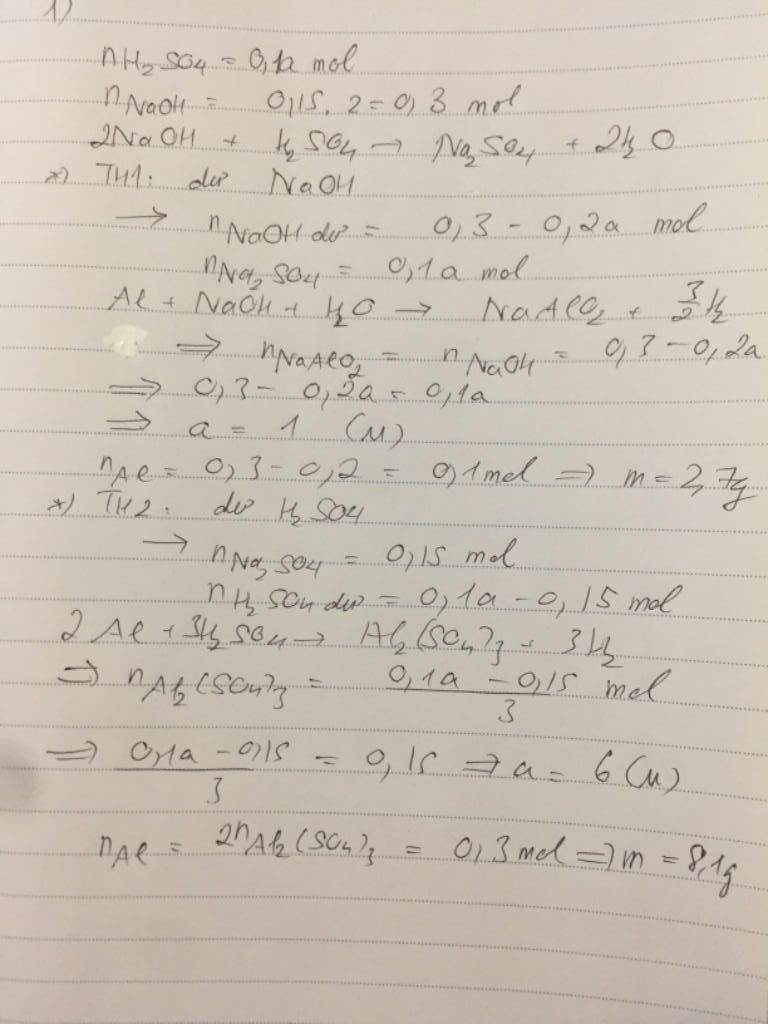 1)
nH₂SO₄ = 0,1a mol
nNaOH = 0,15. 2 = 0,3 mol
2NaOH + H₂SO₄ → Na₂SO₄ + 2H₂O
*) TH1: dư NaOH
→ nNaOH dư = 0,3 - 0,2a mol
nNa₂SO₄ = 0,1a mol
Al + NaOH + H₂O → NaAlO₂ + 3/2 H₂
⇒ nNaAlO₂ = nNaOH = 0,3 - 0,2a
⇒ 0,3 - 0,2a = 0,1a
⇒ a = 1 (M)
nAl = 0,3 - 0,2 = 0,1 mol ⇒ m = 2,7g
*) TH2: dư H₂SO₄
→ nNa₂SO₄ = 0,15 mol
nH₂SO₄ dư = 0,1a - 0,15 mol
2Al + 3H₂SO₄ → Al₂(SO₄)₃ + 3H₂
⇒ nAl₂(SO₄)₃ = (0,1a - 0,15)/3 mol
⇒ (0,1a - 0,15)/3 = 0,15 ⇒ a = 6 (M)
nAl = 2nAl₂(SO₄)₃ = 0,3 mol ⇒ m = 8,1g